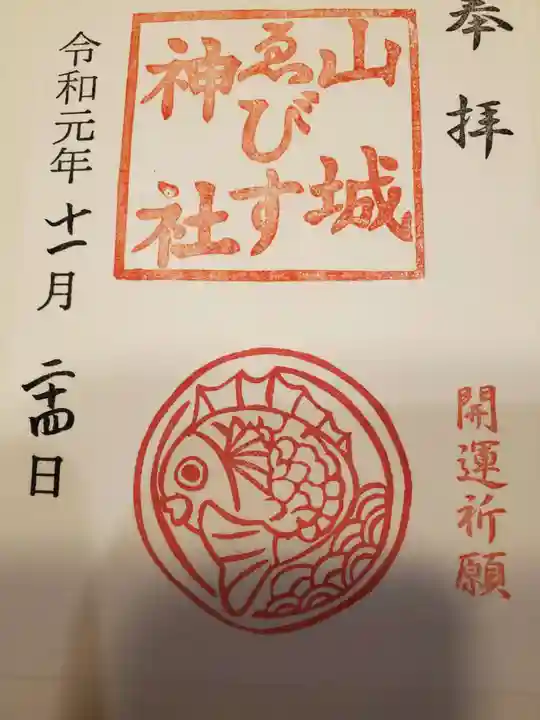 奉拝
開運祈願
山城
ゑびす
神社
令和元年十一月二十四日